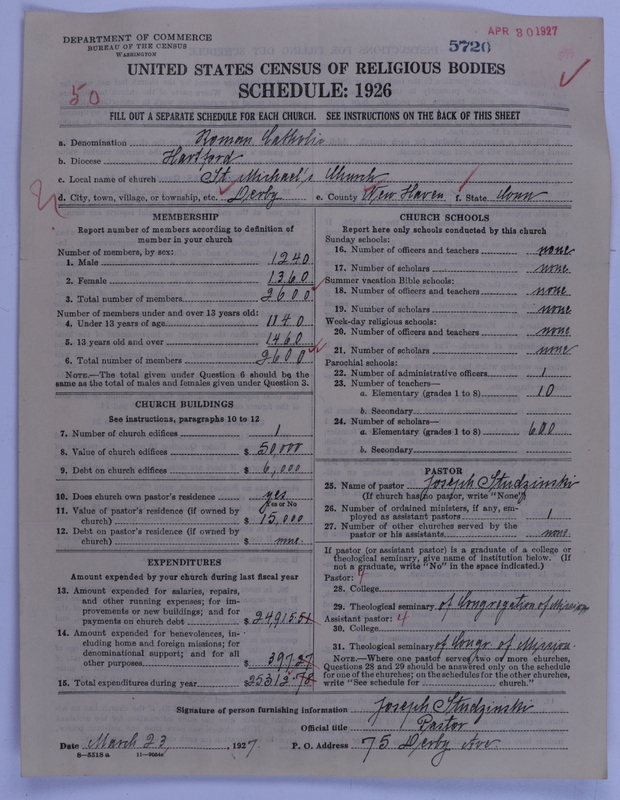 DEPARTMENT OF COMMERCE
BUREAU OF THE CENSUS
WASHINGTON
5720
APR 30 1927
50
UNITED STATES CENSUS OF RELIGIOUS BODIES
SCHEDULE: 1926
FILL OUT A SEPARATE SCHEDULE FOR EACH CHURCH. SEE INSTRUCTIONS ON THE BACK OF THIS SHEET
a. Denomination Roman Catholic
b. Diocese Hartford
c. Local name of church St. Michael's Church
d. City, town, village, or township, etc. Derby e. County New Haven f. State Conn
MEMBERSHIP
Report number of members according to definition of
member in your church
Number of members, by sex:
1. Male 1240
2. Female 1360
3. Total number of members 2600
Number of members under and over 13 years old:
4. Under 13 years of age 1140
5. 13 years old and over 1460
6. Total number of members 2600
NOTE.—The total given under Question 6 should be the
same as the total of males and females given under Question 3.
CHURCH BUILDINGS
See instructions, paragraphs 10 to 12
7. Number of church edifices 1
8. Value of church edifices $ 50,000
9. Debt on church edifices $ 6,000
10. Does church own pastor's residence yes
Yes or No
11. Value of pastor's residence (if owned by
church) $ 15,000
12. Debt on pastor's residence (if owned by
church) $ none.
EXPENDITURES
Amount expended by your church during last fiscal year
13. Amount expended for salaries, repairs,
and other running expenses; for im-
provements or new buildings; and for
payments on church debt $ 24915.51
14. Amount expended for benevolences, in-
cluding home and foreign missions; for
denominational support; and for all
other purposes $ 397.27
15. Total expenditures during year $ 25312.78
CHURCH SCHOOLS
Report here only schools conducted by this church
Sunday schools:
16. Number of officers and teachers none
17. Number of scholars none
Summer vacation Bible schools:
18. Number of officers and teachers none
19. Number of scholars none
Week-day religious schools:
20. Number of officers and teachers none
21. Number of scholars none
Parochial schools:
22. Number of administrative officers 1
23. Number of teachers—
a. Elementary (grades 1 to 8) 10
b. Secondary
24. Number of scholars—
a. Elementary (grades 1 to 8) 600
b. Secondary
PASTOR
25. Name of pastor Joseph Studzinski
(If church has no pastor, write "None")
26. Number of ordained ministers, if any, em-
ployed as assistant pastors 1
27. Number of other churches served by the
pastor or his assistants none
If pastor (or assistant pastor) is a graduate of a college or
theological seminary, give name of institution below. (If
not a graduate, write "No" in the space indicated.)
Pastor: 4
28. College
29. Theological seminary of Congregation of Mission
Assistant pastor: 4
30. College
31. Theological seminary of Congr. of Mission.
NOTE.—Where one pastor served two or more churches,
Questions 28 and 29 should be answered only on the schedule
for one of the churches; on the schedules for the other churches,
write "See schedule for church."
Signature of person furnishing information Joseph Studzinski
Official title Pastor
Date March 23, 1927 P. O. Address 75 Derby Ave